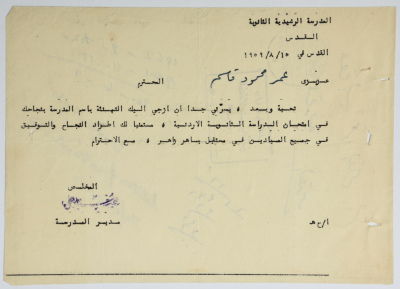 المدرسة الرشيدية الثانوية
القدس
القدس في ١٩٥٩/٨/١٥
عزيزي عمر محمود قاسم المحترم
تحية وبعد ه يسرّني جدا ان ازجي اليك التهنئة باسم المدرسة بنجاحك
في امتحان الدراسة الثانوية الاردنية ه متمنيا لك اطراد النجاح والتوفيق
في جميع الميادين في مستقبل باهر زاهر ه مع الاحترام
المخلص
مدير المدرسة